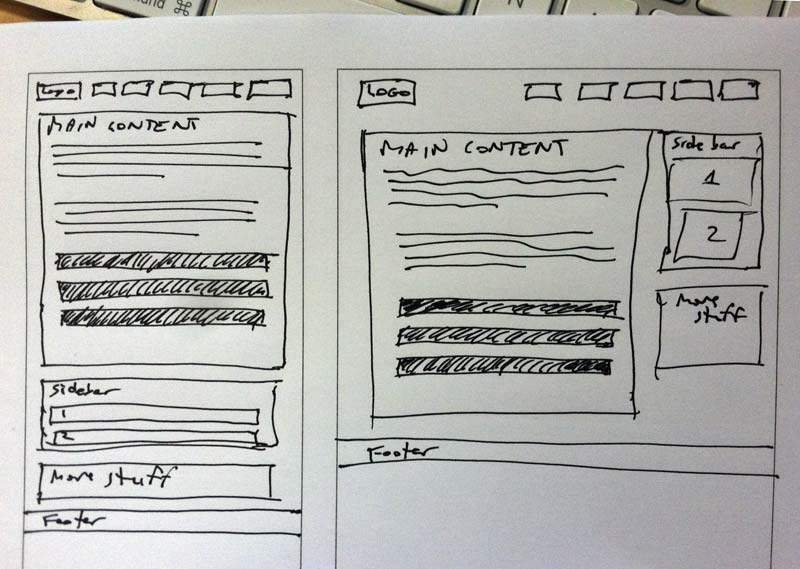 mand ⌘
N
Logo
MAIN CONTENT
Sidebar
1
2
More stuff
Footer
LOGO
MAIN CONTENT
Side bar
1
2
More
stuff
Footer